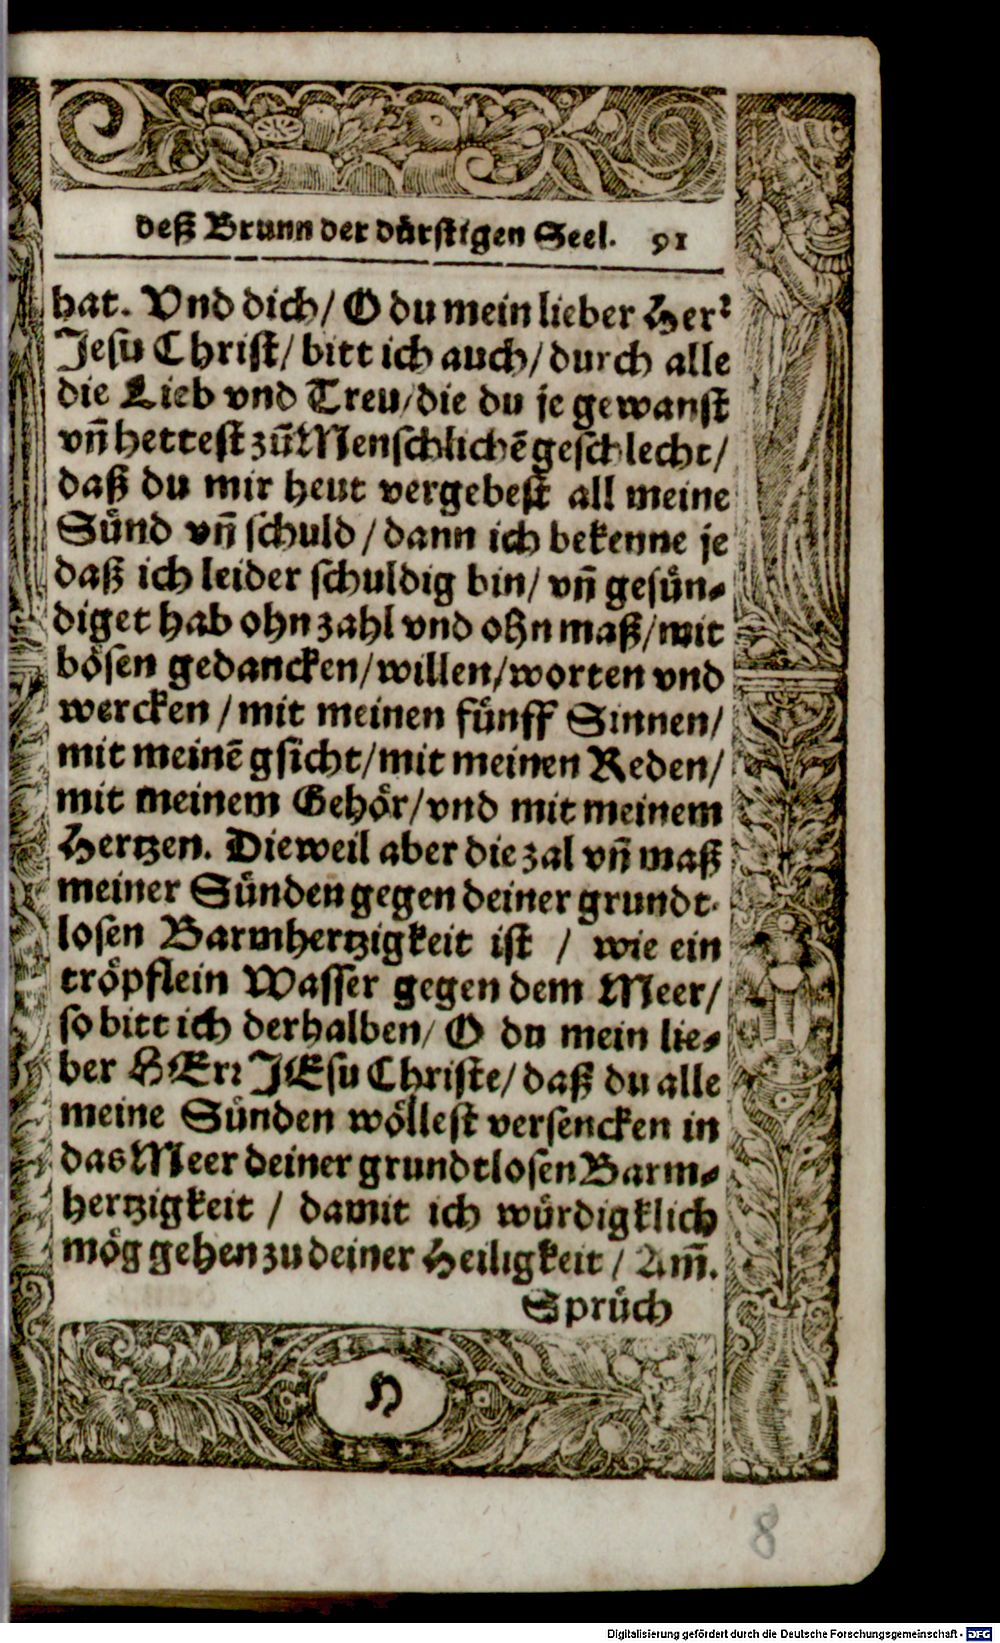 deß Brunn der dürstigen Seel. 91
hat. Vnd dich/ O du mein lieber Herꝛ
Jesu Christ/ bitt ich auch/ durch alle
die Lieb vnd Treu/die du je gewanst
vn̄ hettest zū Menschlichē geschlecht/
daß du mir heut vergebest all meine
Sünd vn̄ schuld / dann ich bekenne je
daß ich leider schuldig bin/ vn̄ gesün-
diget hab ohn zahl vnd ohn maß/mit
bösen gedancken/willen/worten vnd
wercken / mit meinen fünff Sinnen/
mit meinē gsicht/mit meinen Reden/
mit meinem Gehör/vnd mit meinem
Hertzen. Dieweil aber die zal vn̄ maß
meiner Sünden gegen deiner grundt-
losen Barmhertzigkeit ist / wie ein
tröpflein Wasser gegen dem Meer/
so bitt ich derhalben/ O du mein lie-
ber HErꝛ JEsu Christe/ daß du alle
meine Sünden wöllest versencken in
das Meer deiner grundtlosen Barm-
hertzigkeit / damit ich würdigklich
mög gehen zu deiner Heiligkeit / Am̄.
Sprüch
H
8
Digitalisierung gefördert durch die Deutsche Forschungsgemeinschaft - DFG